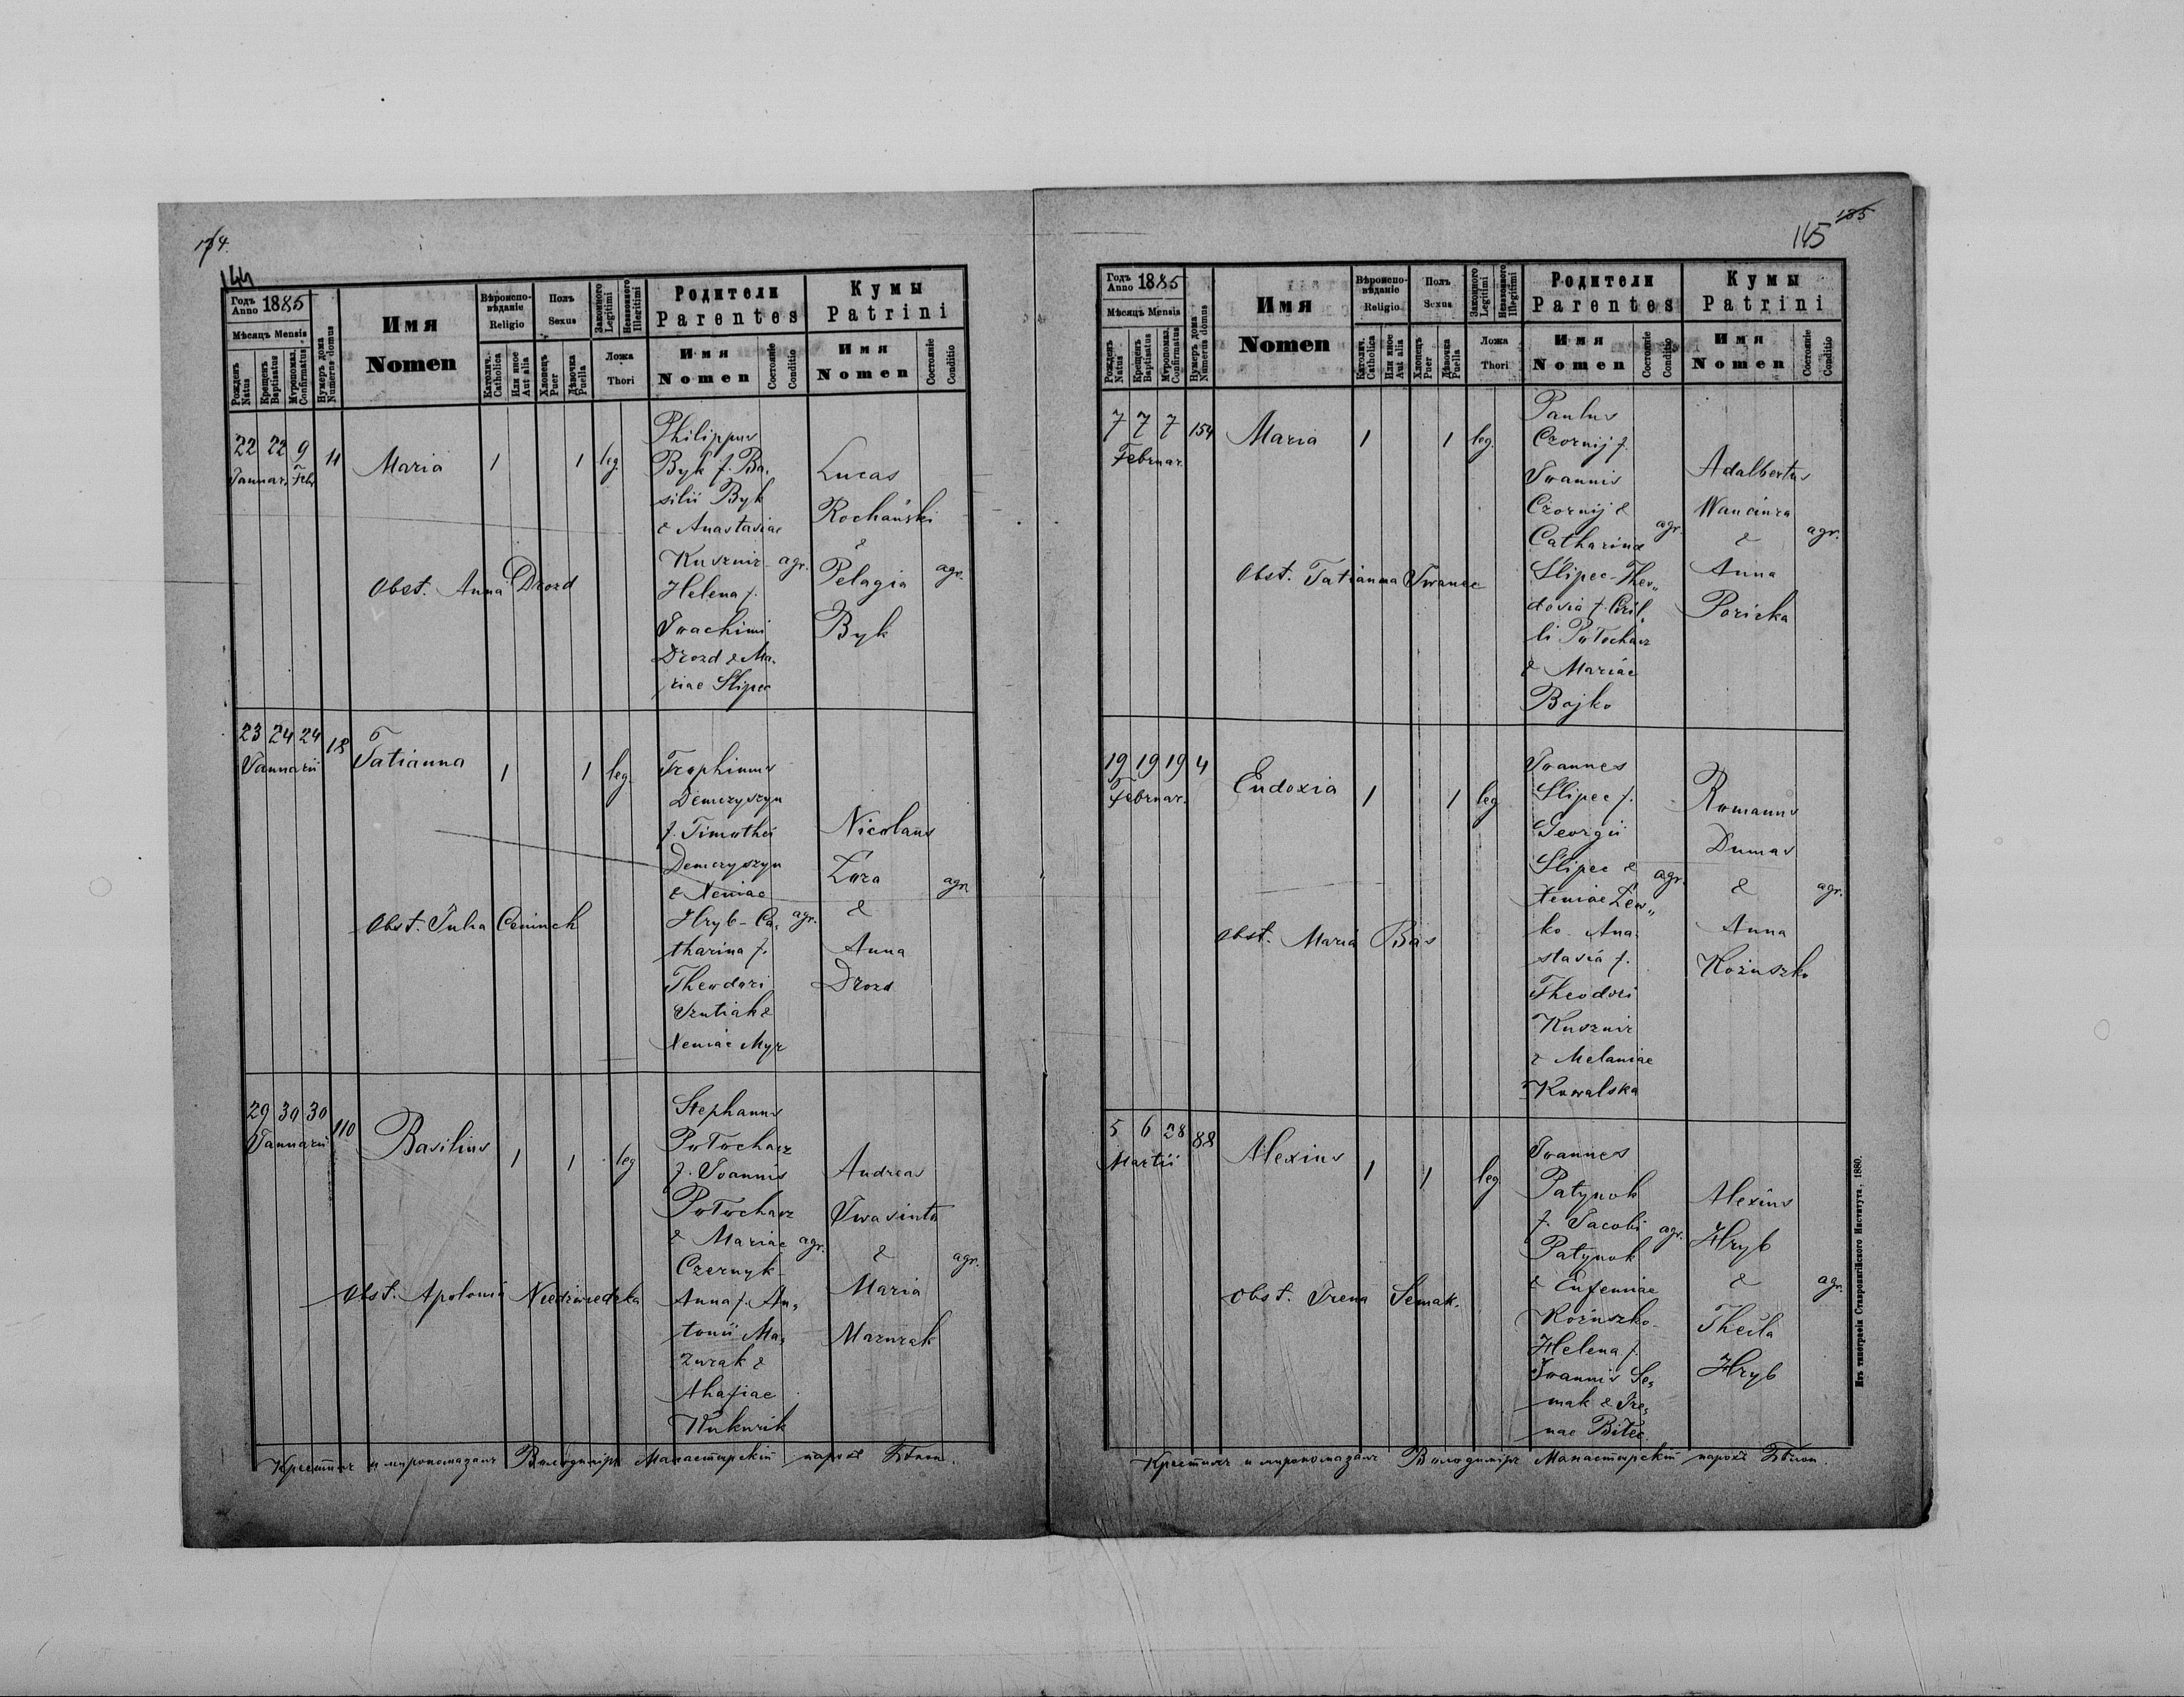 144
Годъ Anno 1885
Мѣсяцъ Mensis
Рожденъ Natus
Крещенъ Baptisatus
Мѵропомаз. Confirmatus
Нумеръ дома Numerus domus
Имя
Nomen
Вѣроисповѣданіе
Religio
Католич. Catholica
Или иное Aut alia
Полъ
Sexus
Хлопецъ Puer
Дѣвочка Puella
Законного Legitimi
Незаконного Illegitimi
Ложа
Thori
Родители
Parentes
Имя
Nomen
Состояніе Conditio
Кумы
Patrini
Имя
Nomen
Состояніе Conditio
22 22 9
Januar. Febr
11
Maria
1 1 leg.
Philippus
Byk f. Ba,
silii Byk
& Anastasiae
Kusznir- agr.
Helena f.
Joachimi
Drozd & Ma,
riae Slipec
Lucas
Rochański
&
Pelagia agr.
Byk
Obst. Anna Drozd
23 24 24
Januarii
18
Tatianna
1 1 leg.
Trophimus
Demczyszyn
f. Timothei
Demczyszyn
& Xeniae
Hryb - Ca, agr.
tharina f.
Theodori
&
Xeniae Myr
Nicolaus
agr.
&
Anna
Drozd
Obst. Julia
29 30 30
Januarii
110
Basilius
1 1 leg
Stephanus
Potochacz
f. Joannis
Potochacz
& Mariae agr.
Czernyk-
Anna f. An,
tonii Ma,
zurak &
Ahafiae
Kukurik
Andreas
Iwasiuta
&
agr.
Maria
Mazurak
Obst. Apolonia Niedzwiedzka
Крестилъ и миропомазалъ Володимиръ Манастырскій парохъ
145
Годъ Anno 1885
Мѣсяцъ Mensis
Рожденъ Natus
Крещенъ Baptisatus
Мѵропомаз. Confirmatus
Нумеръ дома Numerus domus
Имя
Nomen
Вѣроисповѣданіе
Religio
Католич. Catholica
Или иное Aut alia
Полъ
Sexus
Хлопецъ Puer
Дѣвочка Puella
Законного Legitimi
Незаконного Illegitimi
Ложа
Thori
Родители
Parentes
Имя
Nomen
Состояніе Conditio
Кумы
Patrini
Имя
Nomen
Состояніе Conditio
7 7 7
Februar.
154
Maria
1 1 leg.
Paulus
Czornij f.
Joannis
Czornij &
Catharinae agr.
Slipec - Theo,,
dosia f. Ciril,
li Potochacz
& Mariae
Bojko
Adalbertus
&
agr.
Anna
Poricka
Obst. Tatianna Iwanec
19 19 19
Februar.
4
Eudoxia
1 1 leg
Joannes
Slipec f.
Georgii
Slipec & agr.
Xeniae Lew,,
ko - Ana,
stasia f.
Theodori
Kusznir
& Melaniae
Kowalska
Romanus
Dumas
&
agr.
Anna
Kożuszko
Obst. Maria Bas
5 6 28
Martii
88
Alexius
1 1 leg
Joannes
Patynok
f. Jacobi agr.
Patynok
& Eufemiae
Kożuszko-
Helena f.
Joannis Se,
mak & Ire,
nae Bitec
Alexius
Hryb
&
agr.
Thecla
Hryb
Obst. Irena Semak.
Крестилъ и миропомазалъ Володимиръ Манастырскій парохъ
Изъ типографіи Ставропигійского Института, 1880.